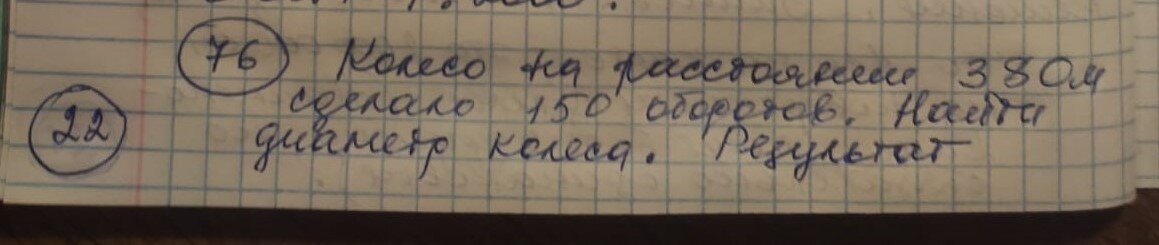 76 Колесо на расстоянии 380м
22 сделало 150 оборотов. Найти
диаметр колеса. Результат